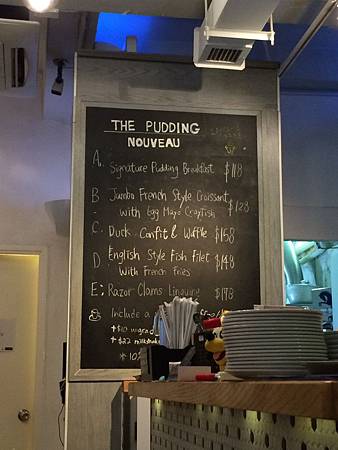 THE PUDDING
NOUVEAU
A. Signature Pudding Breakfast $118
B Jumbo French Style Croissant
with Egg Mayo Crayfish $128
C. Duck Confit & Waffle $158
D. English Style Fish Filet $148
With French fries
E: Razor Clams Linguine $178
Include a